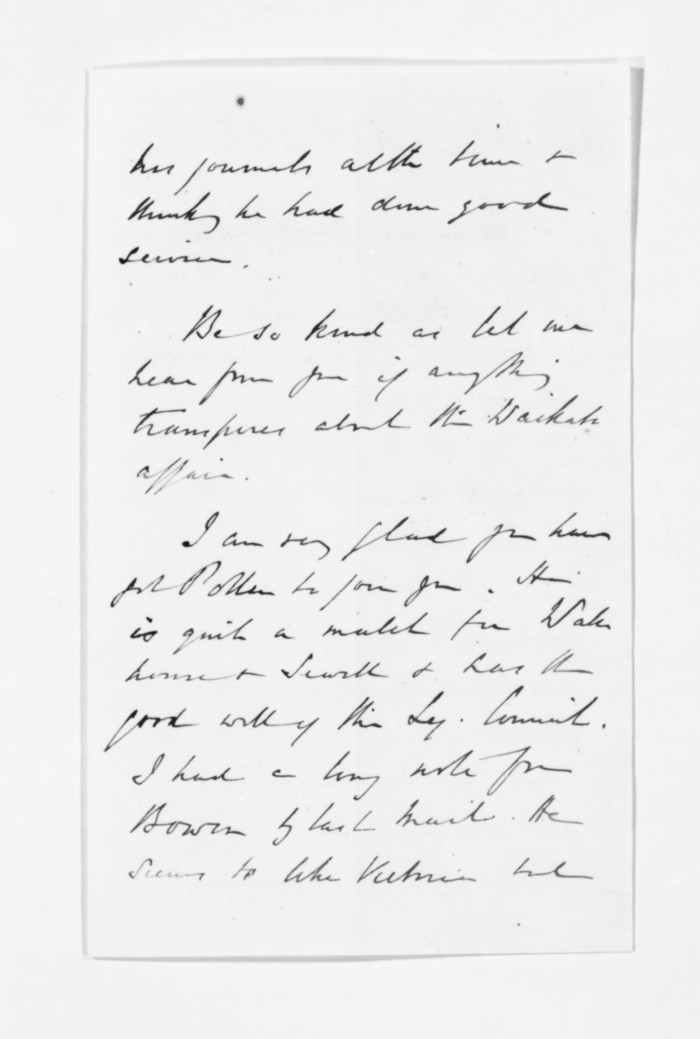 his journals at the time &
thinks he had done good
service.
Be so kind as let me
hear from you if anything
transpires about the Waikato
affair.
I am very glad you have
got Pollen to join you. He
is quite a match for Water
house & Sewell & has the
good will of the Leg. Council.
I had a long note from
Bowen by last Mail. He
seems to like Victoria but